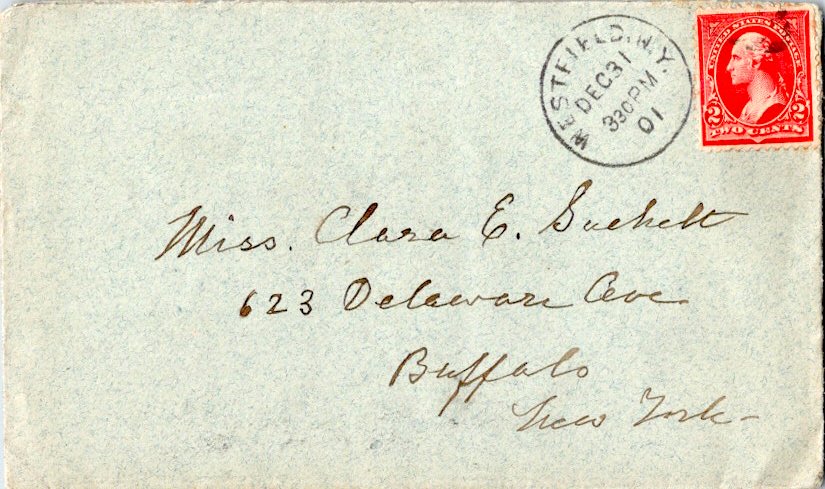 WESTFIELD. N.Y.
DEC 31
330 PM
01
UNITED STATES POSTAGE
2 2
TWO CENTS
Miss. Clara E. Sackett
623 Delaware Ave
Buffalo
New York